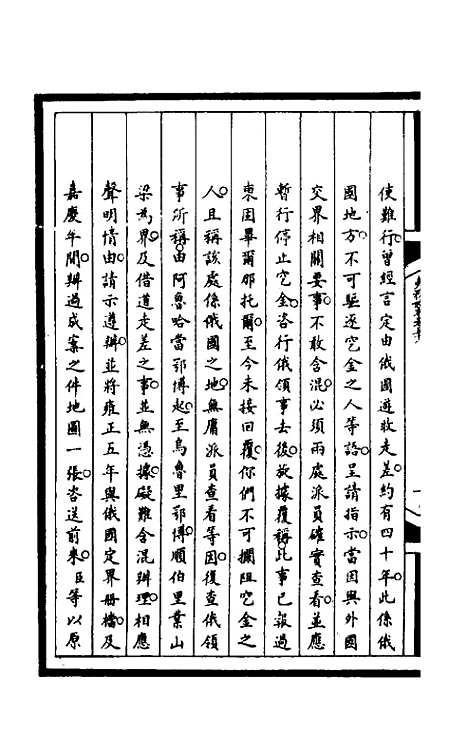 使難行曾經言定由俄國遊牧走差約有四十年此係俄
國地方不可驅逐穵金之人等語呈請指示當因與外國
交界相關要事不敢含混必須兩處派員確實查看並應
暫行停止穵金咨行俄領事去後旋據覆稱此事已報過
東固畢爾那托爾至今未接回覆你們不可攔阻穵金之
人且稱該處係俄國之地無庸派員查看等因復查俄領
事所稱由阿魯哈當鄂博起至烏魯里鄂博順伯里業山
梁為界及借道走差之事並無憑據礙難含混辦理相應
聲明情由請示遵辦並將雍正五年與俄國定界冊檔及
嘉慶年間辦過成案之件地圖一張咨送前來臣等以原